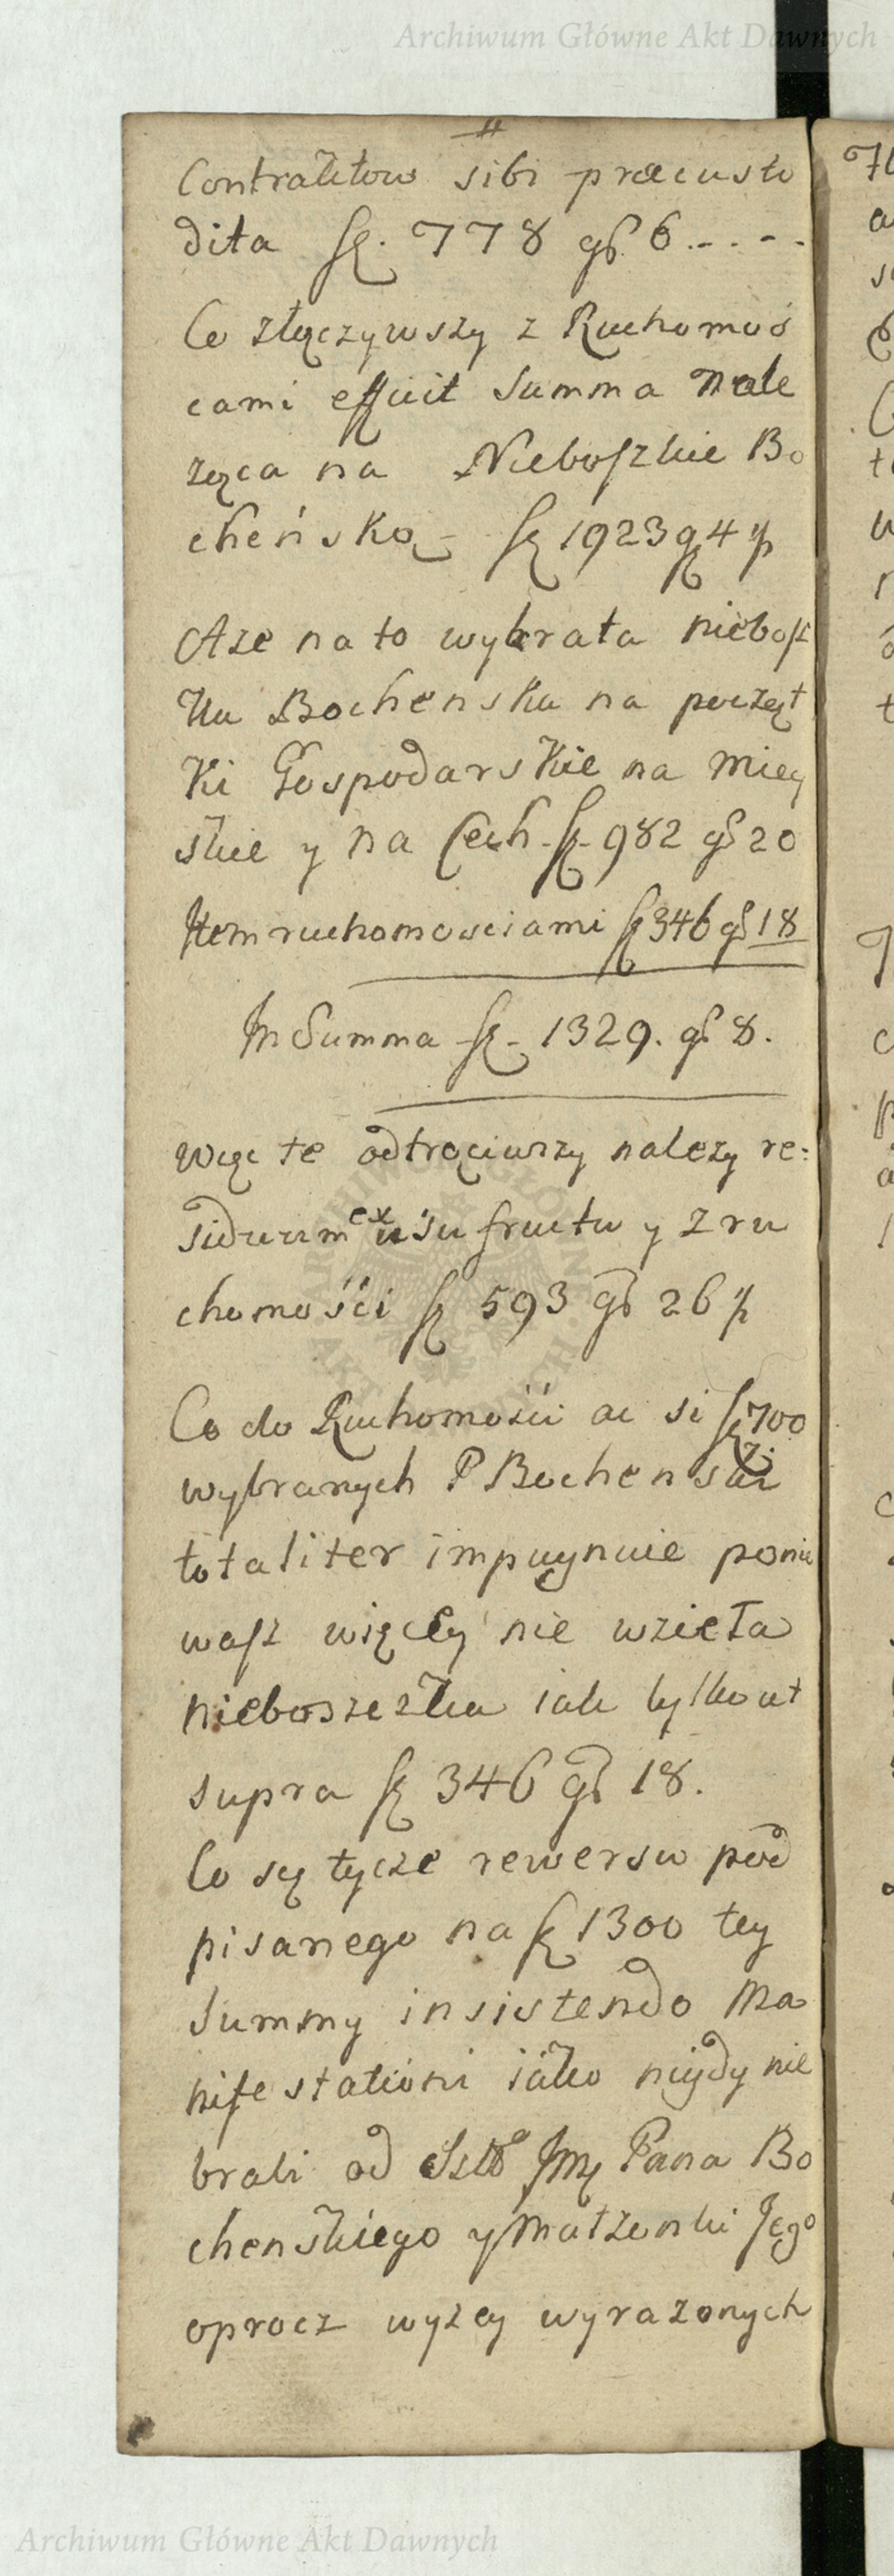 Archiwum Główne Akt Dawnych
Contraktow sibi præcusto
dita fl. 778 gr 6.---
Co złączywszy z Ruchomoś
cami efficit Summa Nale
żąca na Nieboszkie Bo
cheńską fl 1923 gr 4 ½
A ze na to wybrała niebosz
ka Bochenska na początki
ki Gospodarskie na Miey
skie y na Cech fl 982 gr 20
Item ruchomosciami fl 346 gr 18
In Summa fl 1329. gr 8.
Więc te odtrąciwszy należy re:
siduum ex usu fructu y z ru
chomości fl 593 gr 26 ½
Co do Ruchomości ac si fl 700
wybranych P Bochenski
totaliter impugnuie ponie
wasz więcey nie wzieła
nieboszczka iak tylko ut
supra fl 346 gr 18.
Co sę tycze rewersu pod
pisanego na fl 1300 tey
Summy insistendo Ma
nifestationi iako nigdy nie
brali od Jmę Pana Bo
chenskiego y Małżonki Jego
oprocz wyzey wyrazonych
Archiwum Główne Akt Dawnych